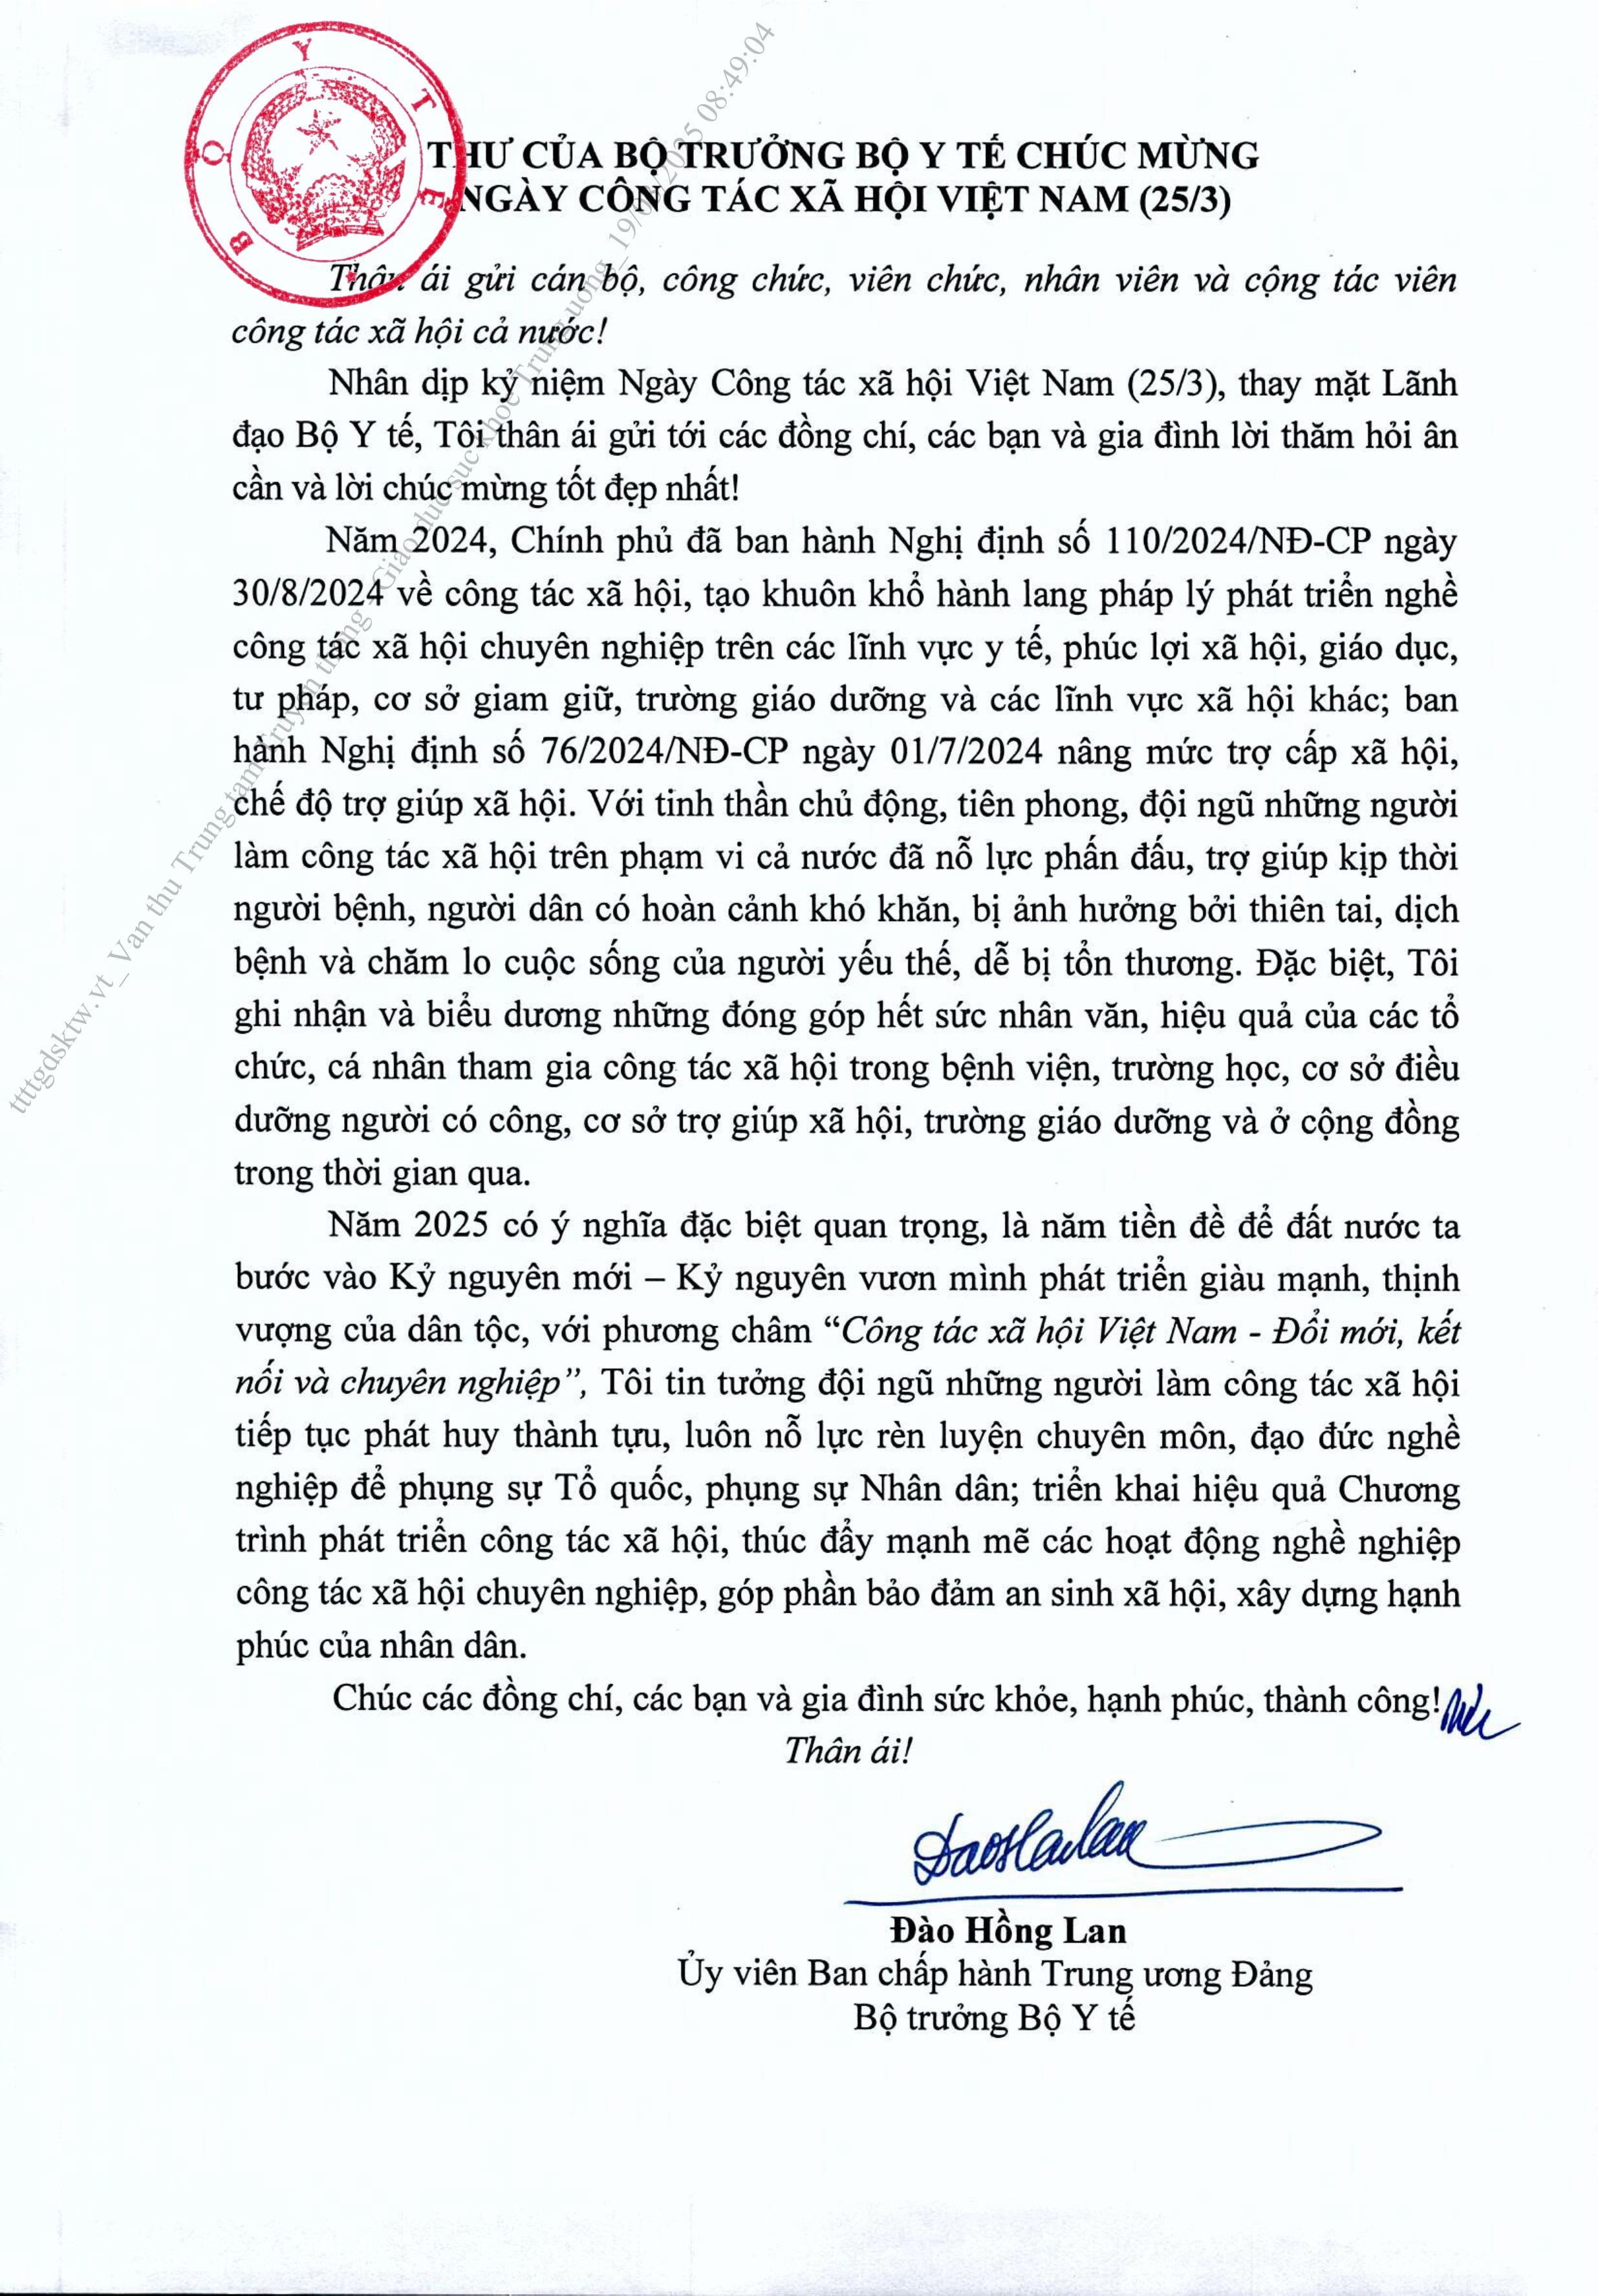 BỘ Y TẾ
THƯ CỦA BỘ TRƯỞNG BỘ Y TẾ CHÚC MỪNG
NGÀY CÔNG TÁC XÃ HỘI VIỆT NAM (25/3)
Thân ái gửi cán bộ, công chức, viên chức, nhân viên và cộng tác viên
công tác xã hội cả nước!
Nhân dịp kỷ niệm Ngày Công tác xã hội Việt Nam (25/3), thay mặt Lãnh
đạo Bộ Y tế, Tôi thân ái gửi tới các đồng chí, các bạn và gia đình lời thăm hỏi ân
cần và lời chúc mừng tốt đẹp nhất!
Năm 2024, Chính phủ đã ban hành Nghị định số 110/2024/NĐ-CP ngày
30/8/2024 về công tác xã hội, tạo khuôn khổ hành lang pháp lý phát triển nghề
công tác xã hội chuyên nghiệp trên các lĩnh vực y tế, phúc lợi xã hội, giáo dục,
tư pháp, cơ sở giam giữ, trường giáo dưỡng và các lĩnh vực xã hội khác; ban
hành Nghị định số 76/2024/NĐ-CP ngày 01/7/2024 nâng mức trợ cấp xã hội,
chế độ trợ giúp xã hội. Với tinh thần chủ động, tiên phong, đội ngũ những người
làm công tác xã hội trên phạm vi cả nước đã nỗ lực phấn đấu, trợ giúp kịp thời
người bệnh, người dân có hoàn cảnh khó khăn, bị ảnh hưởng bởi thiên tai, dịch
bệnh và chăm lo cuộc sống của người yếu thế, dễ bị tổn thương. Đặc biệt, Tôi
ghi nhận và biểu dương những đóng góp hết sức nhân văn, hiệu quả của các tổ
chức, cá nhân tham gia công tác xã hội trong bệnh viện, trường học, cơ sở điều
dưỡng người có công, cơ sở trợ giúp xã hội, trường giáo dưỡng và ở cộng đồng
trong thời gian qua.
Năm 2025 có ý nghĩa đặc biệt quan trọng, là năm tiền đề để đất nước ta
bước vào Kỷ nguyên mới – Kỷ nguyên vươn mình phát triển giàu mạnh, thịnh
vượng của dân tộc, với phương châm “Công tác xã hội Việt Nam - Đổi mới, kết
nối và chuyên nghiệp”, Tôi tin tưởng đội ngũ những người làm công tác xã hội
tiếp tục phát huy thành tựu, luôn nỗ lực rèn luyện chuyên môn, đạo đức nghề
nghiệp để phụng sự Tổ quốc, phụng sự Nhân dân; triển khai hiệu quả Chương
trình phát triển công tác xã hội, thúc đẩy mạnh mẽ các hoạt động nghề nghiệp
công tác xã hội chuyên nghiệp, góp phần bảo đảm an sinh xã hội, xây dựng hạnh
phúc của nhân dân.
Chúc các đồng chí, các bạn và gia đình sức khỏe, hạnh phúc, thành công!
Thân ái!
Đào Hồng Lan
Ủy viên Ban chấp hành Trung ương Đảng
Bộ trưởng Bộ Y tế